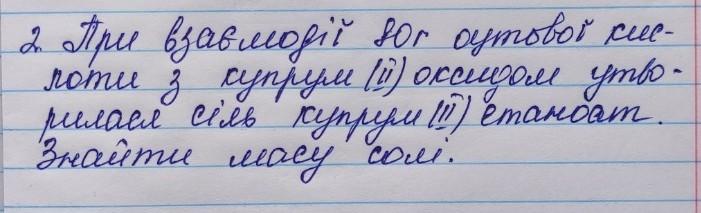 2. При взаємодії 80г оцтової кис-
лоти з купрум (II) оксидом утво-
рилася сіль купрум (III) етаноат.
Знайти масу солі.